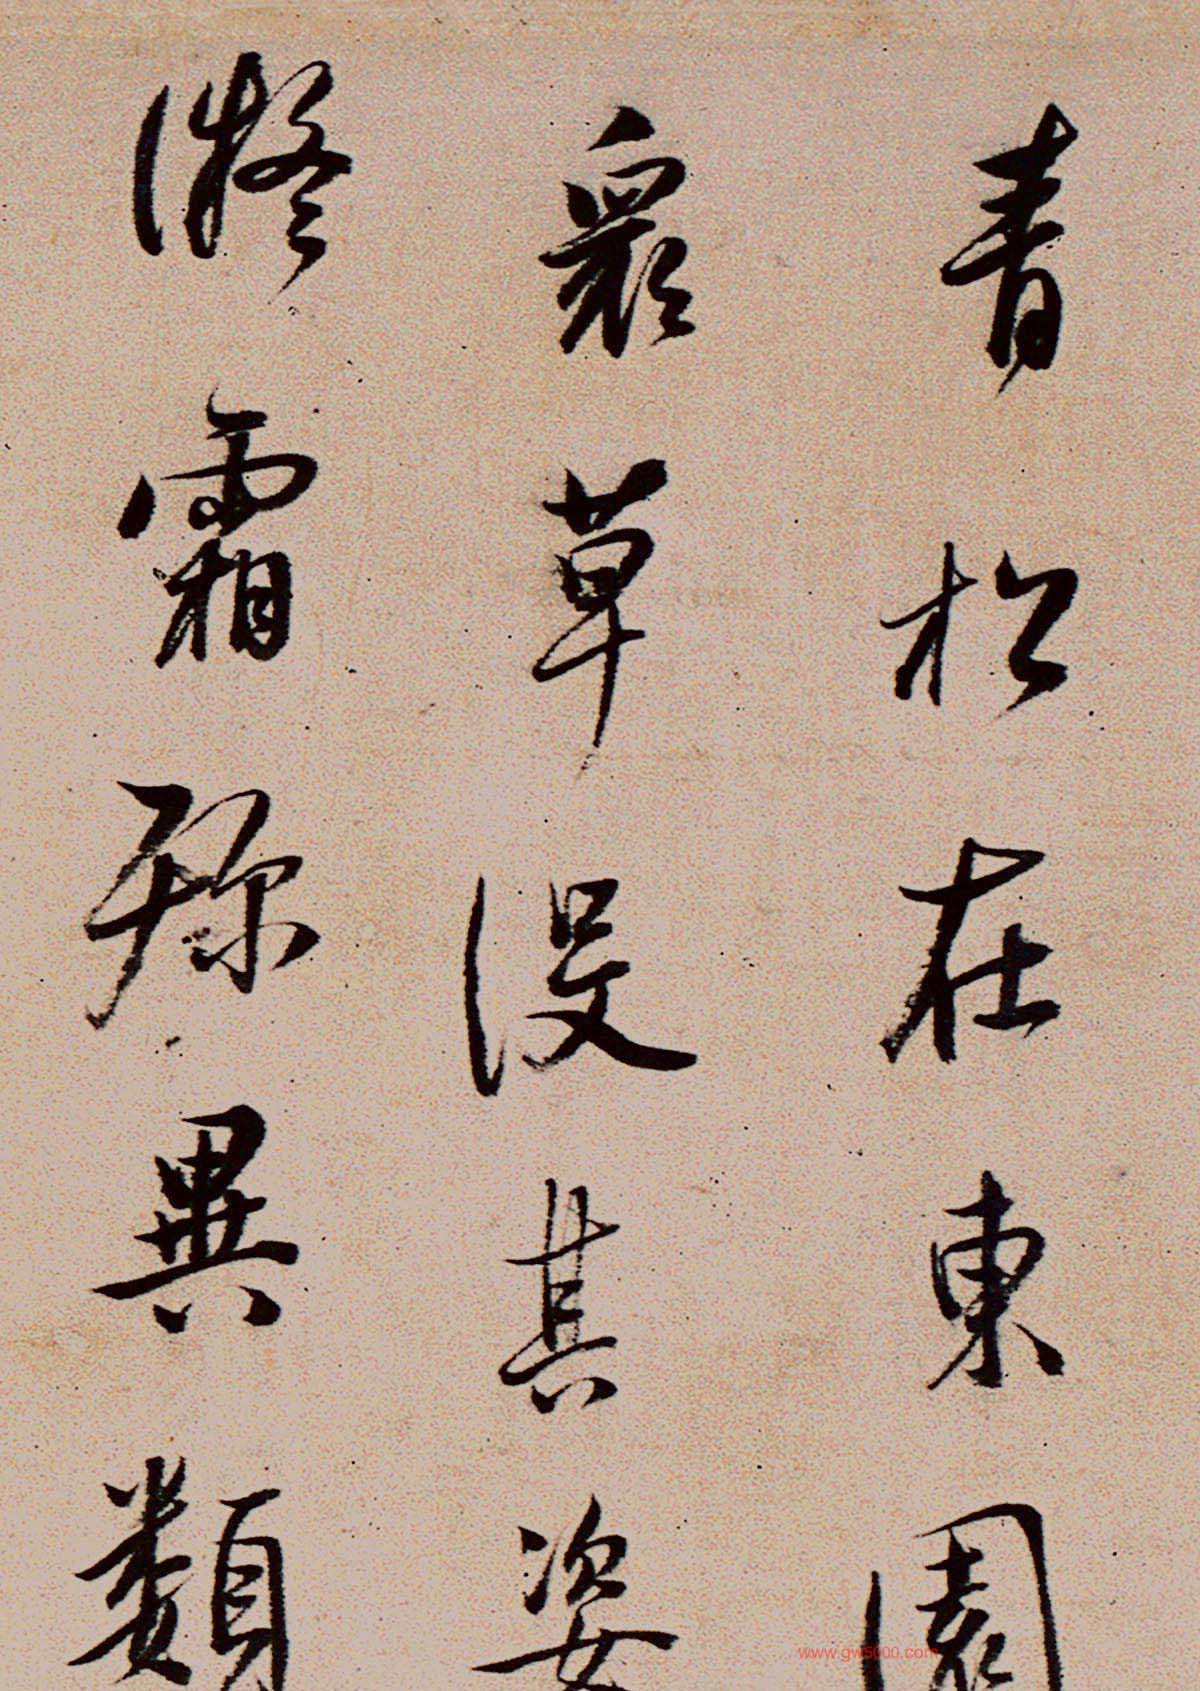 青松在東園
眾草沒其姿
凝霜殄異類
www.gw5000.com